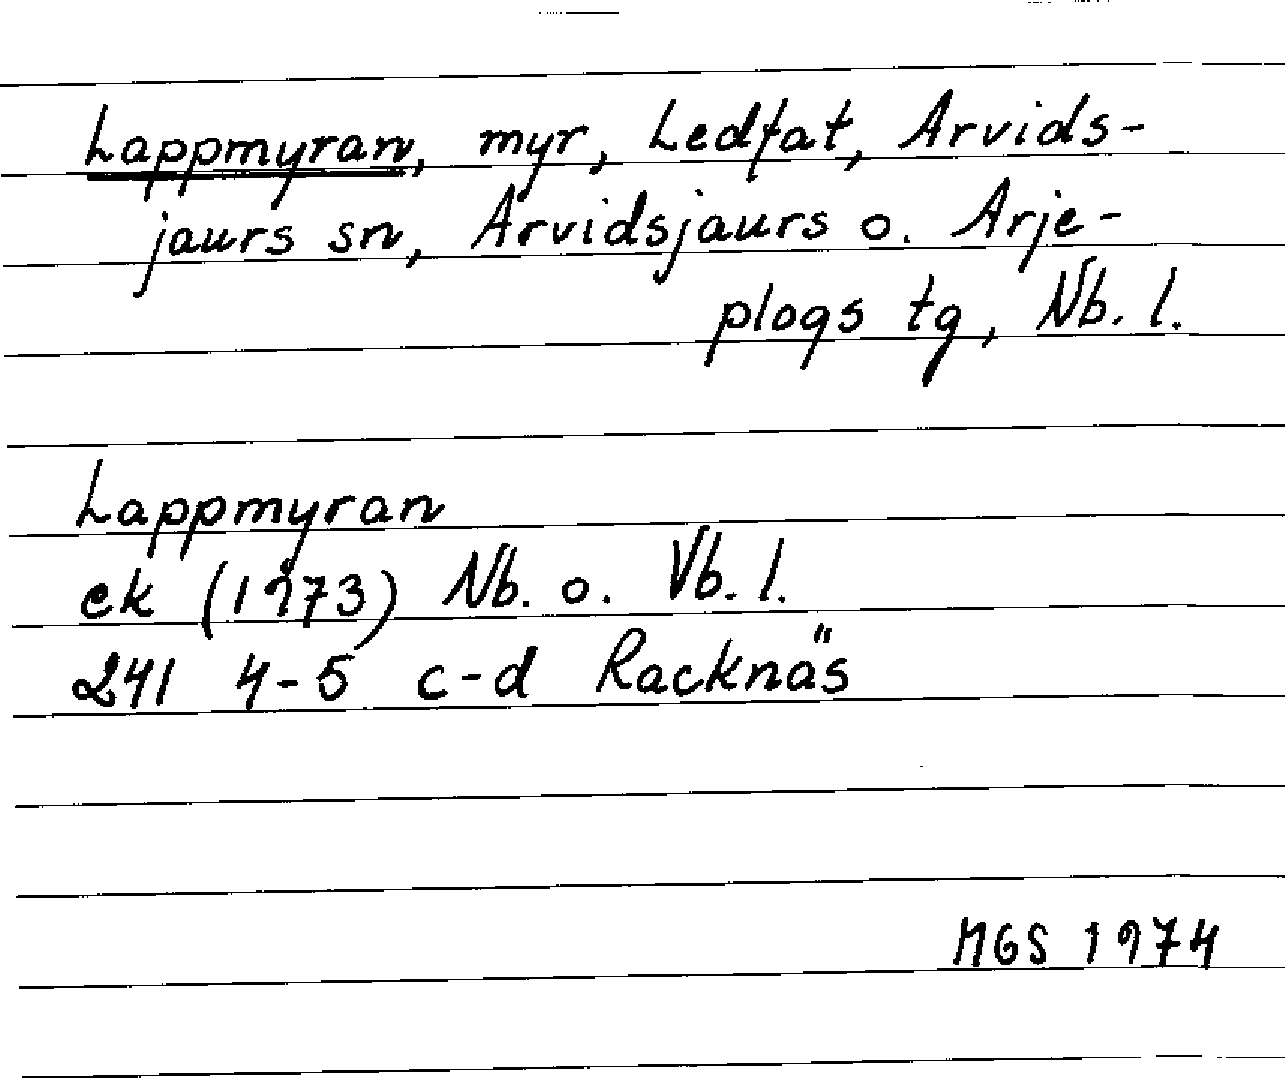 Lappmyran, myr, Ledfat, Arvids-
jaurs sn, Arvidsjaurs o. Arje-
plogs tg, Nb. l.
Lappmyran
ek (1973) Nb. o. Vb. l.
241 4-5 c-d Racknäs
MGS 1974